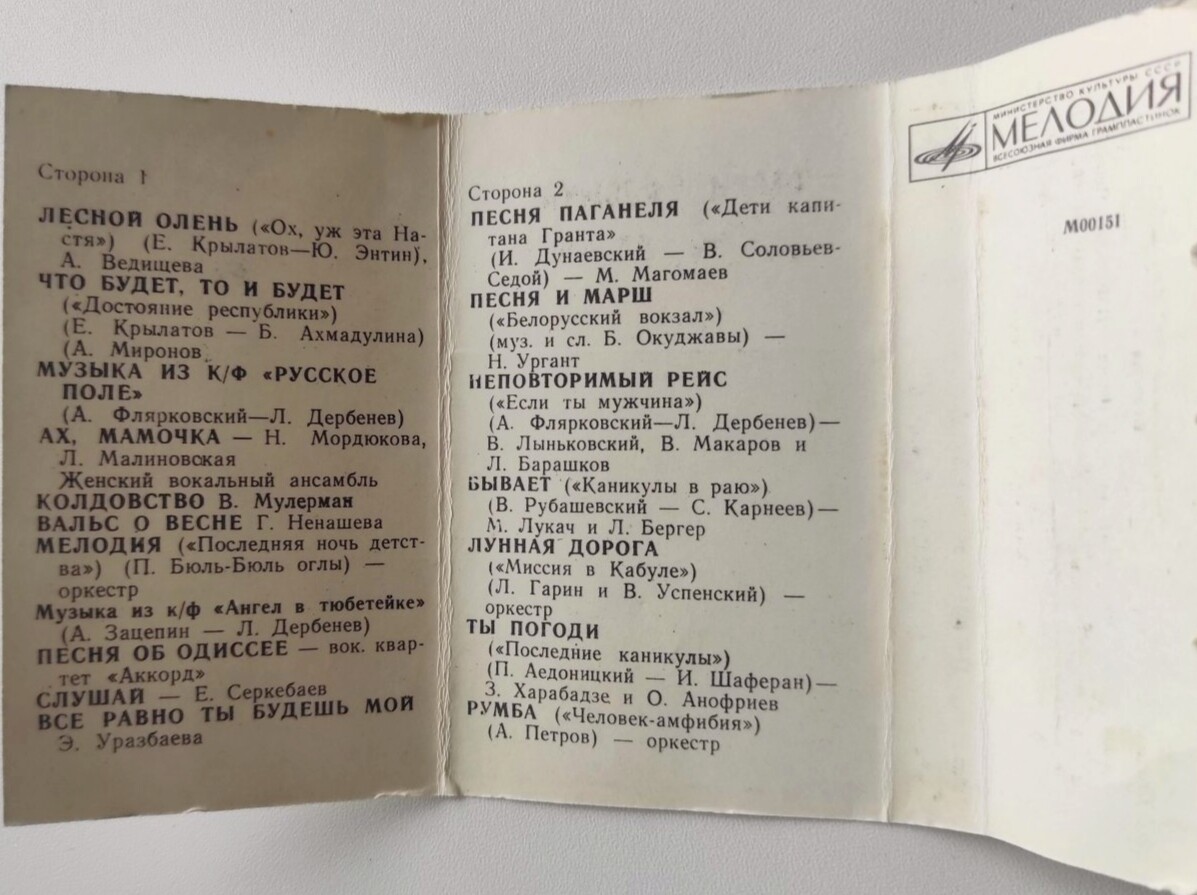 Сторона 1
ЛЕСНОЙ ОЛЕНЬ («Ох, уж эта На-
стя») (Е. Крылатов—Ю. Энтин),
А. Ведищева
ЧТО БУДЕТ, ТО И БУДЕТ
(«Достояние республики»)
(Е. Крылатов — Б. Ахмадулина)
(А. Миронов
МУЗЫКА ИЗ К/Ф «РУССКОЕ
ПОЛЕ»
(А. Флярковский—Л. Дербенев)
АХ, МАМОЧКА — Н. Мордюкова,
Л. Малиновская
Женский вокальный ансамбль
КОЛДОВСТВО В. Мулерман
ВАЛЬС О ВЕСНЕ Г. Ненашева
МЕЛОДИЯ («Последняя ночь детст-
ва») (П. Бюль-Бюль оглы) —
оркестр
Музыка из к/ф «Ангел в тюбетейке»
(А. Зацепин — Л. Дербенев)
ПЕСНЯ ОБ ОДИССЕЕ — вок. квар-
тет «Аккорд»
СЛУШАЙ — Е. Серкебаев
ВСЕ РАВНО ТЫ БУДЕШЬ МОЙ
Э. Уразбаева
Сторона 2
ПЕСНЯ ПАГАНЕЛЯ («Дети капи-
тана Гранта»
(И. Дунаевский — В. Соловьев-
Седой) — М. Магомаев
ПЕСНЯ И МАРШ
(«Белорусский вокзал»)
(муз. и сл. Б. Окуджавы) —
Н. Ургант
НЕПОВТОРИМЫЙ РЕЙС
(«Если ты мужчина»)
(А. Флярковский—Л. Дербенев)—
В. Лыньковский, В. Макаров и
Л. Барашков
БЫВАЕТ («Каникулы в раю»)
(В. Рубашевский — С. Карнеев)—
М. Лукач и Л. Бергер
ЛУННАЯ ДОРОГА
(«Миссия в Кабуле»)
(Л. Гарин и В. Успенский) —
оркестр
ТЫ ПОГОДИ
(«Последние каникулы»)
(П. Аедоницкий — И. Шаферан)—
З. Харабадзе и О. Анофриев
РУМБА («Человек-амфибия»)
(А. Петров) — оркестр
МИНИСТЕРСТВО КУЛЬТУРЫ СССР
МЕЛОДИЯ
ВСЕСОЮЗНАЯ ФИРМА ГРАМПЛАСТИНОК
М00151